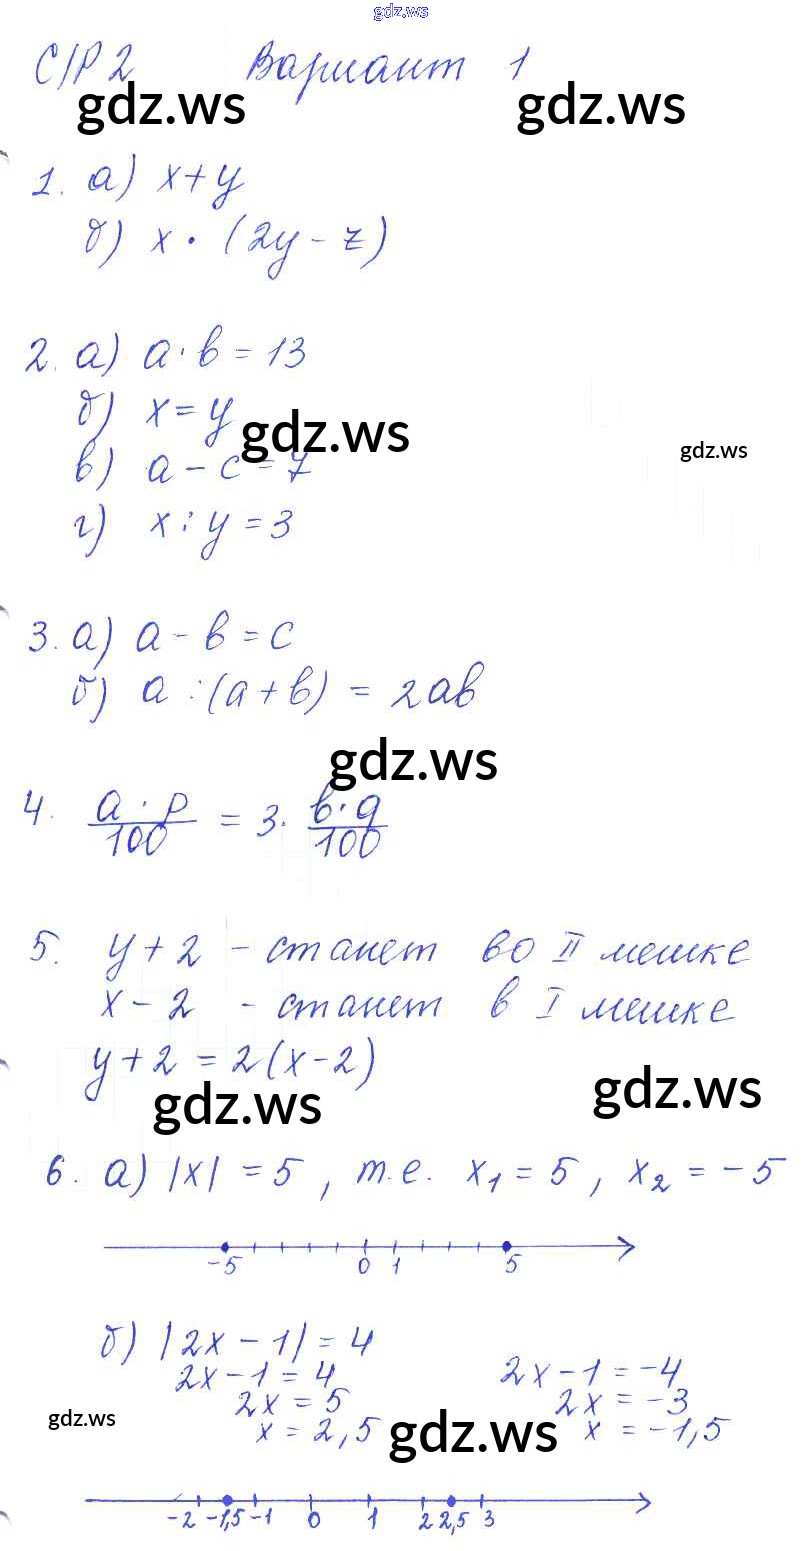 gdz.ws
С/Р 2 Вариант 1
gdz.ws gdz.ws
1. а) x + y
б) x · (2y - z)
2. а) a · b = 13
б) x = y
gdz.ws gdz.ws
в) a - c = 7
г) x : y = 3
3. а) a - b = c
б) a : (a + b) = 2ab
gdz.ws
4. a · p / 100 = 3 · b · q / 100
5. y + 2 - станет во II мешке
x - 2 - станет в I мешке
y + 2 = 2(x - 2)
gdz.ws gdz.ws
6. а) |x| = 5, т.е. x₁ = 5, x₂ = -5
-5 0 1 5
б) |2x - 1| = 4
2x - 1 = 4 2x - 1 = -4
2x = 5 2x = -3
x = 2,5 x = -1,5
gdz.ws gdz.ws
-2 -1,5 -1 0 1 2 2,5 3